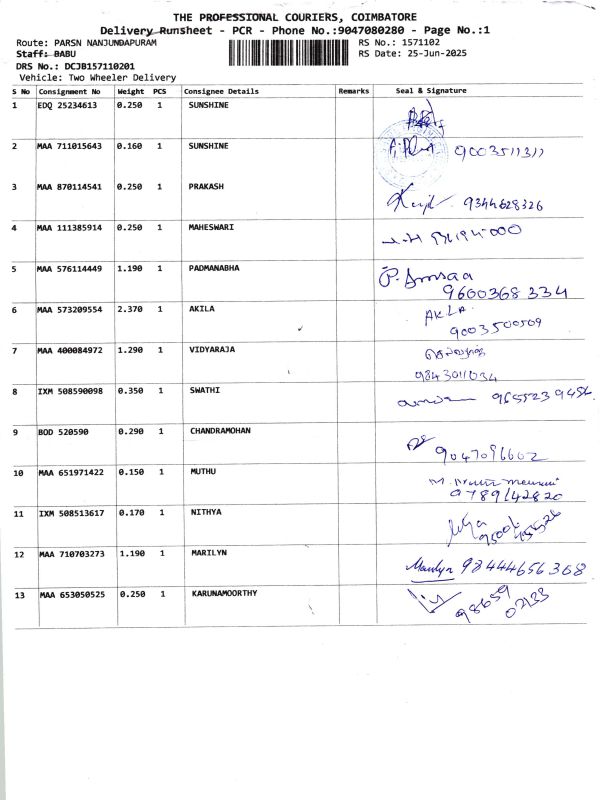 THE PROFESSIONAL COURIERS, COIMBATORE
Delivery Runsheet - PCR - Phone No.:9047080280 - Page No.:1
Route: PARSN NANJUNDAPURAM
RS No.: 1571102
Staff: BABU
RS Date: 25-Jun-2025
DRS No.: DCJB157110201
Vehicle: Two Wheeler Delivery
S No Consignment No Weight PCS Consignee Details Remarks Seal & Signature
1 EDQ 25234613 0.250 1 SUNSHINE
2 MAA 711015643 0.160 1 SUNSHINE 9003511311
3 MAA 870114541 0.250 1 PRAKASH 9344628326
4 MAA 111385914 0.250 1 MAHESWARI
5 MAA 576114449 1.190 1 PADMANABHA P. Amsaa
9600368334
6 MAA 573209554 2.370 1 AKILA AKLA
9003500509
7 MAA 400084972 1.290 1 VIDYARAJA
9843011034
8 IXM 508590098 0.350 1 SWATHI 9655239456
9 BOD 520590 0.290 1 CHANDRAMOHAN
9047096602
10 MAA 651971422 0.150 1 MUTHU
9789142820
11 IXM 508513617 0.170 1 NITHYA
12 MAA 710703273 1.190 1 MARILYN Marilyn 98444656368
13 MAA 653050525 0.250 1 KARUNAMOORTHY 98659
02133